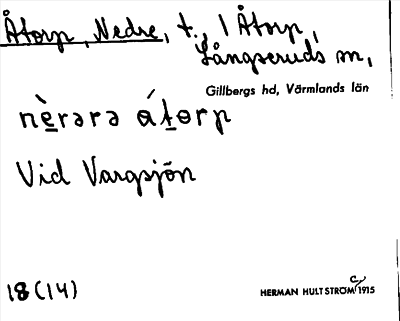 Åtorp, Nedre, t., 1 Åtorp,
Långseruds sn,
Gillbergs hd, Värmlands län
nèrərə átorp
Vid Vargsjön
18 (14)
HERMAN HULTSTRÖM 1915